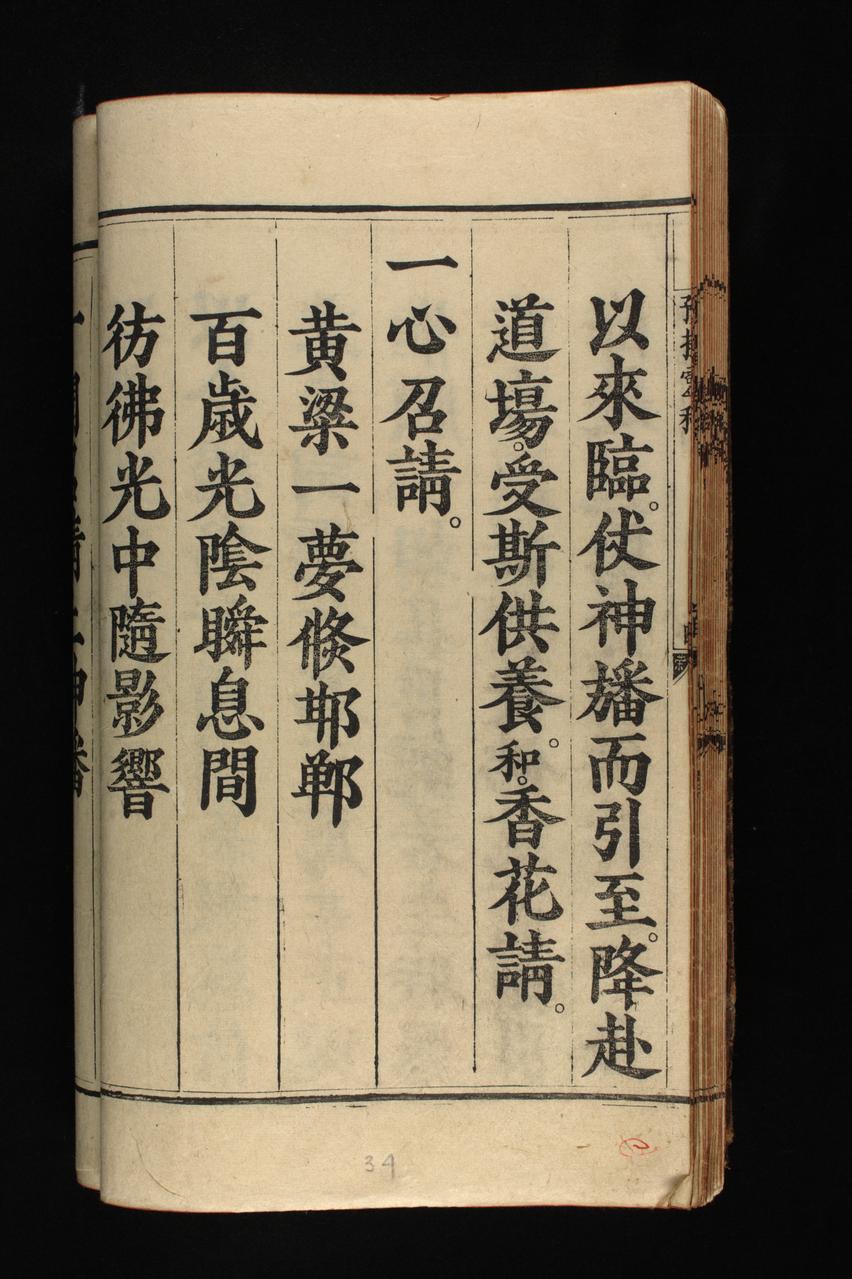 以來臨。仗神旛而引至。降赴
道場。受斯供養。和。香花請。
一心召請。
黄粱一夢倐邯鄲
百歲光陰瞬息間
彷彿光中隨影響
34